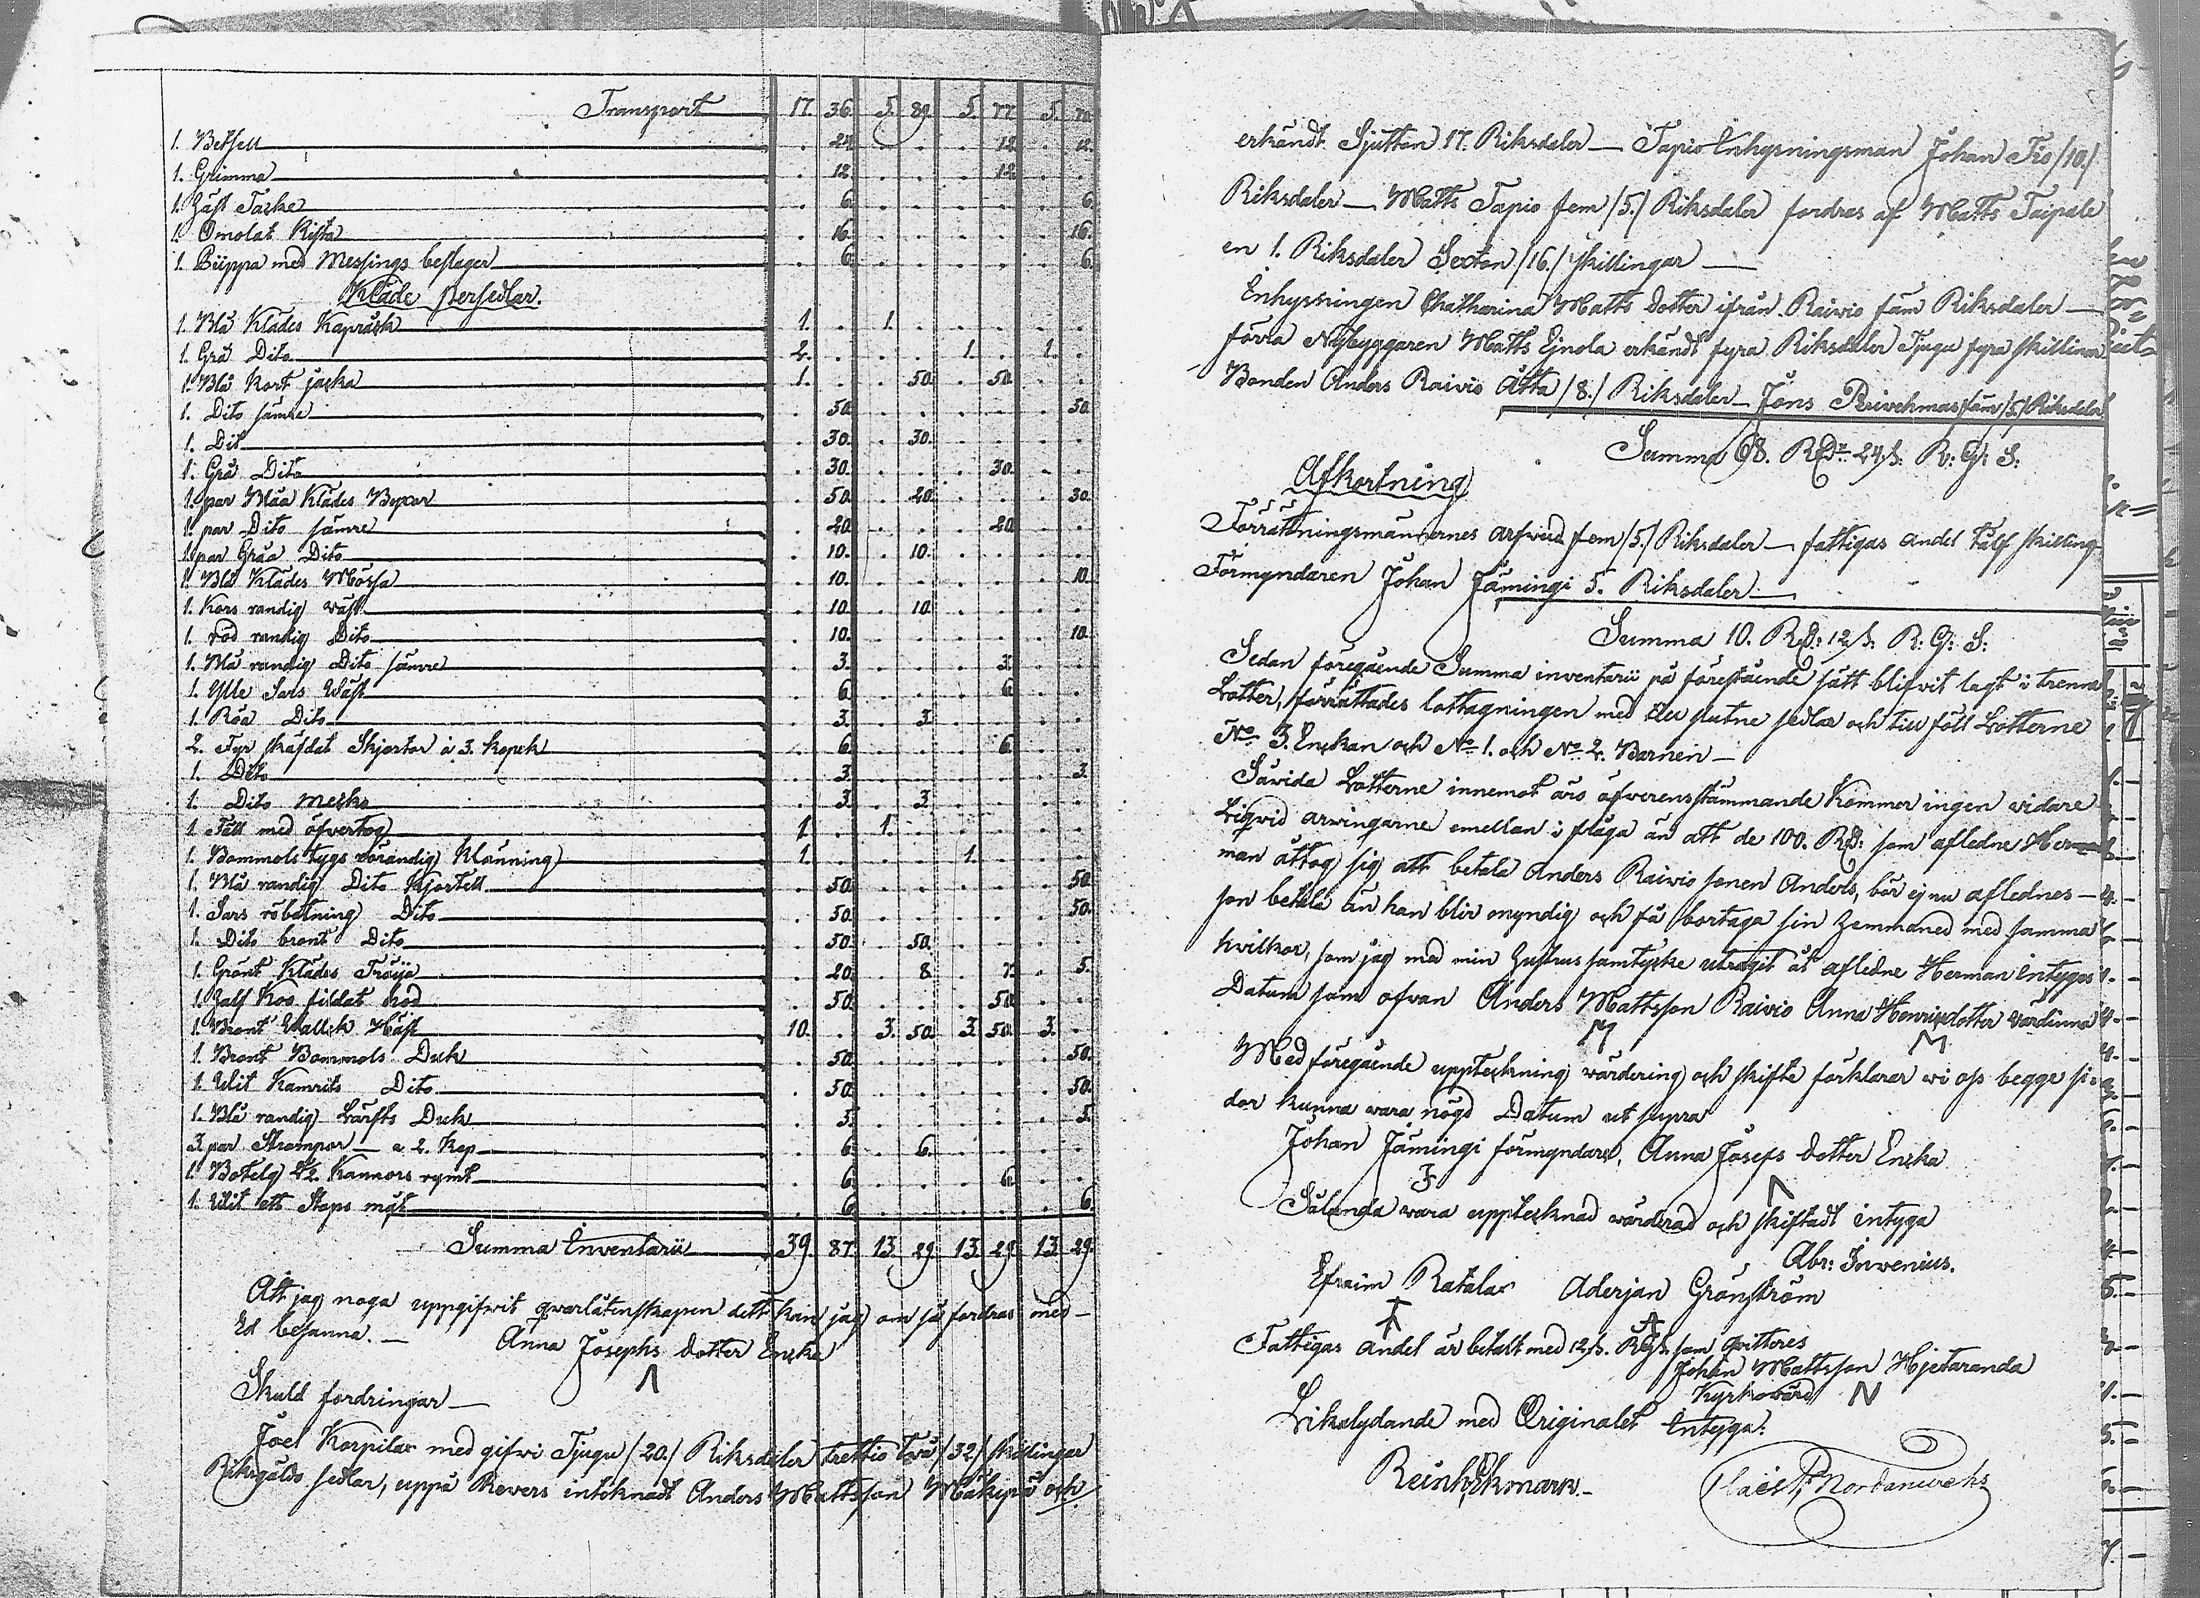 Transport 17. 36. 5. 89. 5. 77. 5. 70.
1. Betsell . 24. . . . 12. . 12.
1. Grimma . 12. . . . 12. . .
1. Häst Täcke . 6. . . . . . 6.
1. Omolat Kista . 16. . . . . . 16.
1. Püppa med Messings beslager . 6. . . . . . 6.
Kläde persedlar.
1. Blå Klädes Kapråck 1. . 1. . . . . .
1. Grå Dito 2. . . . 1. . 1. .
1. Blå Kort jacka 1. . . 50. . 50. . .
1. Dito sämre . 50. . . . . . 50.
1. Dit . 30. . 30. . . . .
1. Grå Dito . 30. . . . 30. . .
1. par Blåa Klädes Byxor . 50. . 20. . . . 30.
1. par Dito sämre . 20. . . . 20. . .
1. par Gråa Dito . 10. . 10. . . . .
1. Blå Klädes Mössa . 10. . . . . . 10.
1. Kors randig wäst . 10. . 10. . . . .
1. röd randig Dito . 10. . . . . . 10.
1. Blå randig Dito sämre . 3. . . . 3. . .
1. Ylle Sars Wäst . 6. . . . 6. . .
1. Röd Dito . 3. . 3. . . . .
2. Fyr skäfdat Skjortor à 3. kopek . 6. . . . 6. . .
1. Dito . 3. . . . . . 3.
1. Dito . 3. . 3. . . . .
1. Fäll med öfvertog 1. . 1. . . . . .
1. Bommols tygs rörandig Klänning 1. . . . 1. . . .
1. Blå randig Dito Kjortell . 50. . . . . . 50.
1. Sars röbotning Dito . 50. . . . . . 50.
1. Dito bront Dito . 50. . 50. . . . .
1. Grönt Klädes Tröija . 20. . 8. . 7. . 5.
1. Half Koo fildat hod . 50. . . . 50. . .
1. Bront Wallek Häst 10. . 3. 50. 3. 50. 3. .
1. Bront Bommols Duk . 50. . . . . . 50.
1. Wit Kamrits Dito . 50. . . . . . 50.
1. Blå randig Lärfts Duk . 5. . . . . . 5.
3. par Strumpor — a 2. Kop . 6. . 6. . . . .
1. Botelg 2½. Kannors rymt . 6. . . . 6. . .
1. Wit ett Staps måt . 6. . . . . . 6.
Summa Inventarii 39. 87. 13. 29. 13. 29. 13. 29.
Att jag noga uppgifwit qvarlåtenskapen dett kan jag om så fordras med —
Ed besanna. — Anna Josephs dotter Encka
Skuld fordringar —
Joel Korpilax med gifwi Tjugu /20./ Riksdaler trettio två /32./ skillingar
Riksgälds sedlar, uppå Revers intöknadt Anders Mattsson Mäkipä och
erkändt Sjutton 17. Riksdaler — Tapio Inhysningsman Johan Tio /10./
Riksdaler — Matts Tapio fem /5./ Riksdaler fordras af Matts Taipale
en 1. Riksdaler Sexton /16./ skillingar —
Inhysningen Chatharina Matts dotter ifrån Raiwio fäm Riksdaler —
förra Nybyggaren Matts Ejnola erkändt fyra Riksdaler Tjugu fyra skillingar
Bonden Anders Raivio åtta /8./ Riksdaler — Jöns fäm /5./ Riksdaler
Summa 68. RDr: 24 s. R: G: S:
Afkortning
Förrättningsmännernes arfwed fem /5./ Riksdaler — fattigas andel tålf skilling
Förmyndaren Johan Jämingi 5. Riksdaler —
Summa 10. RD: 12 s. R: G: S:
Sedan föregående Summa inventarii på förestående sätt blifvit lagt i trenne
Lotter, förrättades lottagningen med till slutne sedlar och till föll Lotterne
No 3. Enckan och No 1. och No 2. Barnen —
Såvida Lotterne innemot äro öfverensstämmande kommer ingen vidare
Liqvid arwingarne emellan i fråga än att de 100. RD: som afledne Her
man åttog sig att betala Anders Raivio sonen Anders, bör ej nu aflednes —
son betala än han blir myndig och få bortaga sin hemmaned med samma
hvilkor, som jag med min hustrus samtycke utrögit åt afledne Herman intygas
Datum som ofvan Anders Mattsson Raivio Anna Henrixdotter värdinna
Med föregående uppteckning wärdering och skifte förklarar wi oss begge si=
dor kunna wara nögd Datum ut supra
Johan Jämingi förmyndare. Anna Josefs dotter Encka
Sålunda wara upptecknad wärderad och skiftadt intyga
Abr: Inwenius.
Efraim Ratalax Aderjan Grönström
Fattigas andel är betalt med 12 s. RGs. som qvitteres
Johan Mattsson Hjetaranda
Kyrkowärd
Likalydande med Originalet intyga:
Reinh Ekmark.